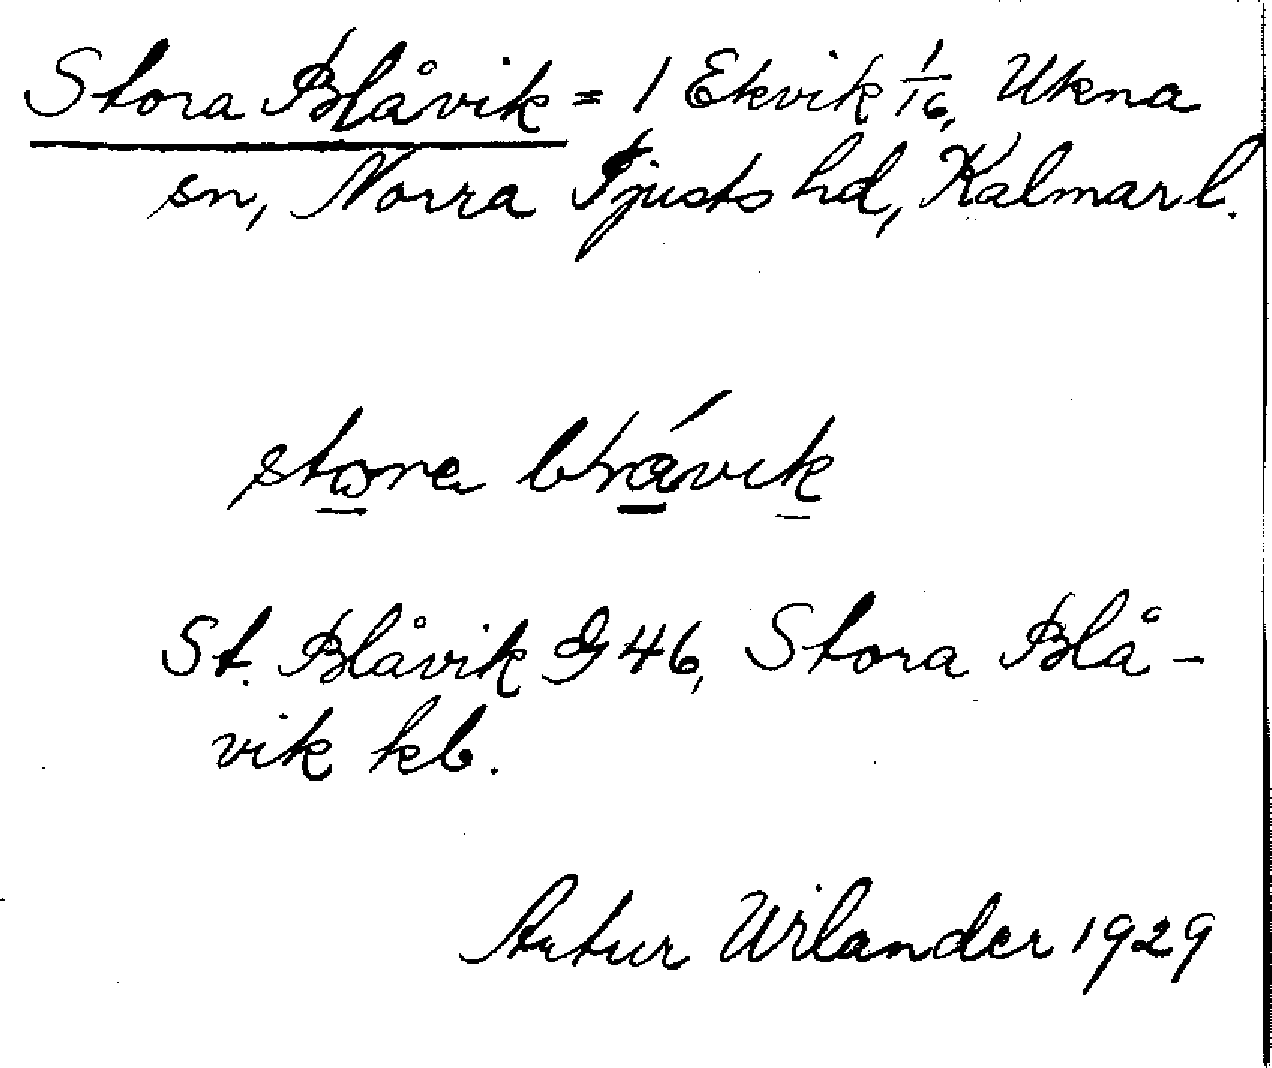 Stora Blåvik = 1 Ekvik 1/16, Ukna
sn, Norra Tjusts hd, Kalmar l.
St. Blåvik G 46, Stora Blå-
vik kb.
Artur Wilander 1929